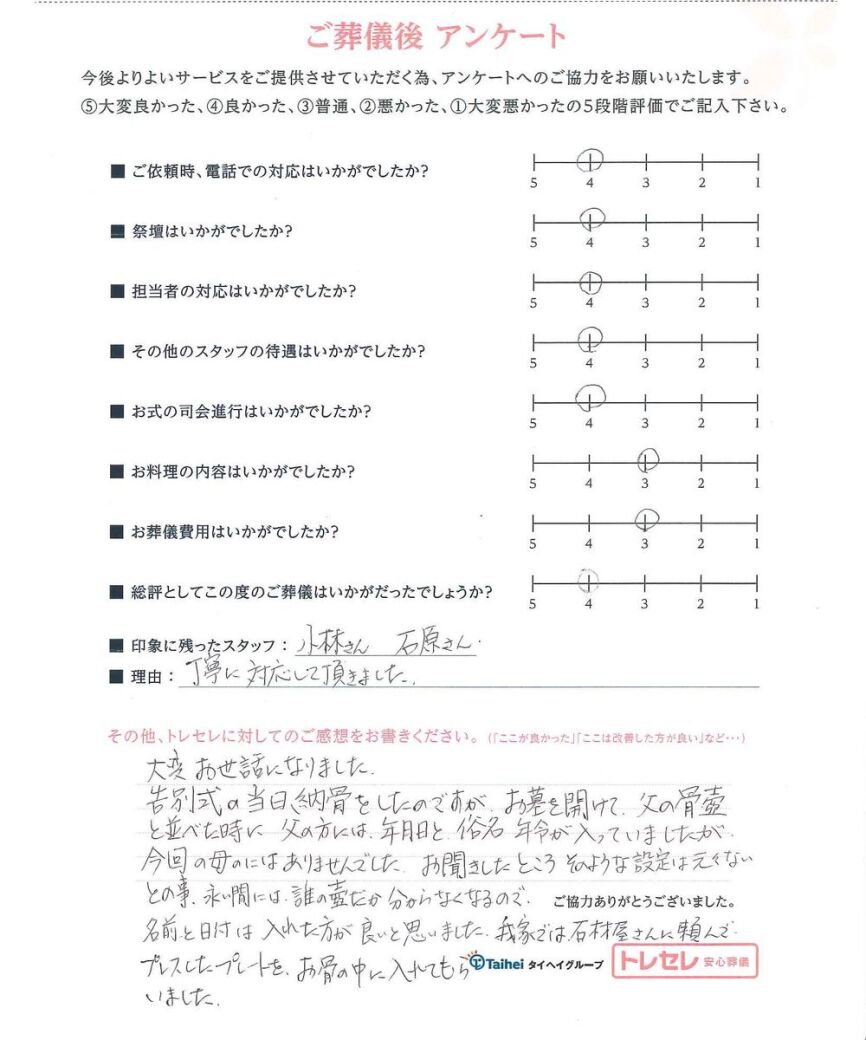 ご葬儀後 アンケート
今後よりよいサービスをご提供させていただく為、アンケートへのご協力をお願いいたします。
⑤大変良かった、④良かった、③普通、②悪かった、①大変悪かったの5段階評価でご記入下さい。
■ ご依頼時、電話での対応はいかがでしたか？
5 4 3 2 1
■ 祭壇はいかがでしたか？
5 4 3 2 1
■ 担当者の対応はいかがでしたか？
5 4 3 2 1
■ その他のスタッフの待遇はいかがでしたか？
5 4 3 2 1
■ お式の司会進行はいかがでしたか？
5 4 3 2 1
■ お料理の内容はいかがでしたか？
5 4 3 2 1
■ お葬儀費用はいかがでしたか？
5 4 3 2 1
■ 総評としてこの度のご葬儀はいかがだったでしょうか？
5 4 3 2 1
■ 印象に残ったスタッフ： 小林さん 石原さん.
■ 理由： 丁寧に対応して頂きました.
その他、トレセレに対してのご感想をお書きください。（「ここが良かった」「ここは改善した方が良い」など・・・）
大変 お世話になりました.
告別式の当日、納骨をしたのですが、お墓を開けて、父の骨壷
と並べた時に 父の方には、年月日と、俗名 年令が入っていましたが
今回の母のにはありませんでした. お聞きしたところ そのような設定は元々ない
との事、永い間には、誰の壷だか分からなくなるので、
ご協力ありがとうございました。
名前と日付は 入れた方が良いと思いました. 我家では石材屋さんに頼んで
プレスしたプレートを、お骨の中に入れてもら
いました.
Taihei タイヘイグループ
トレセレ 安心葬儀